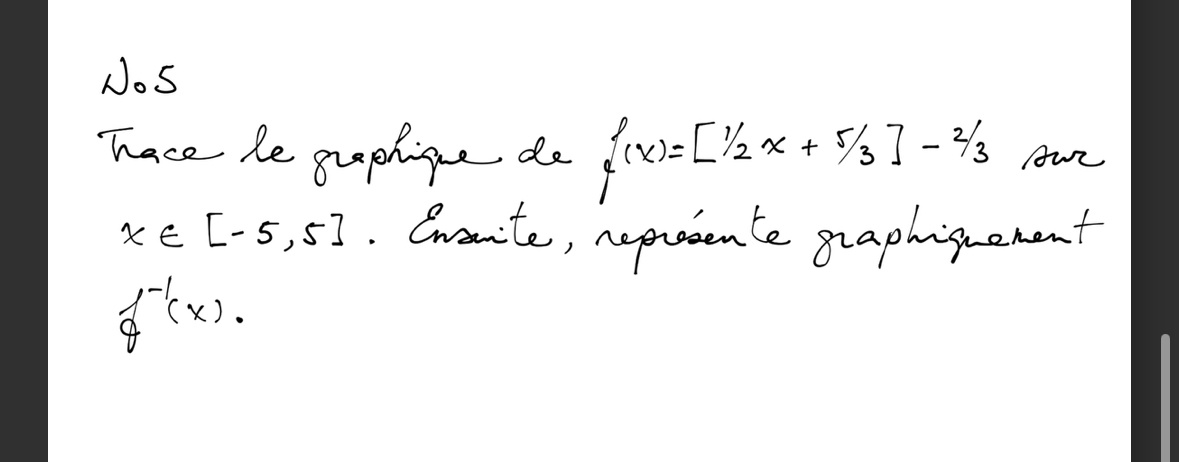 No5
Trace le graphique de f(x)=[1/2 x + 5/3] - 2/3 sur
x ∈ [-5,5]. Ensuite, représente graphiquement
f⁻¹(x).